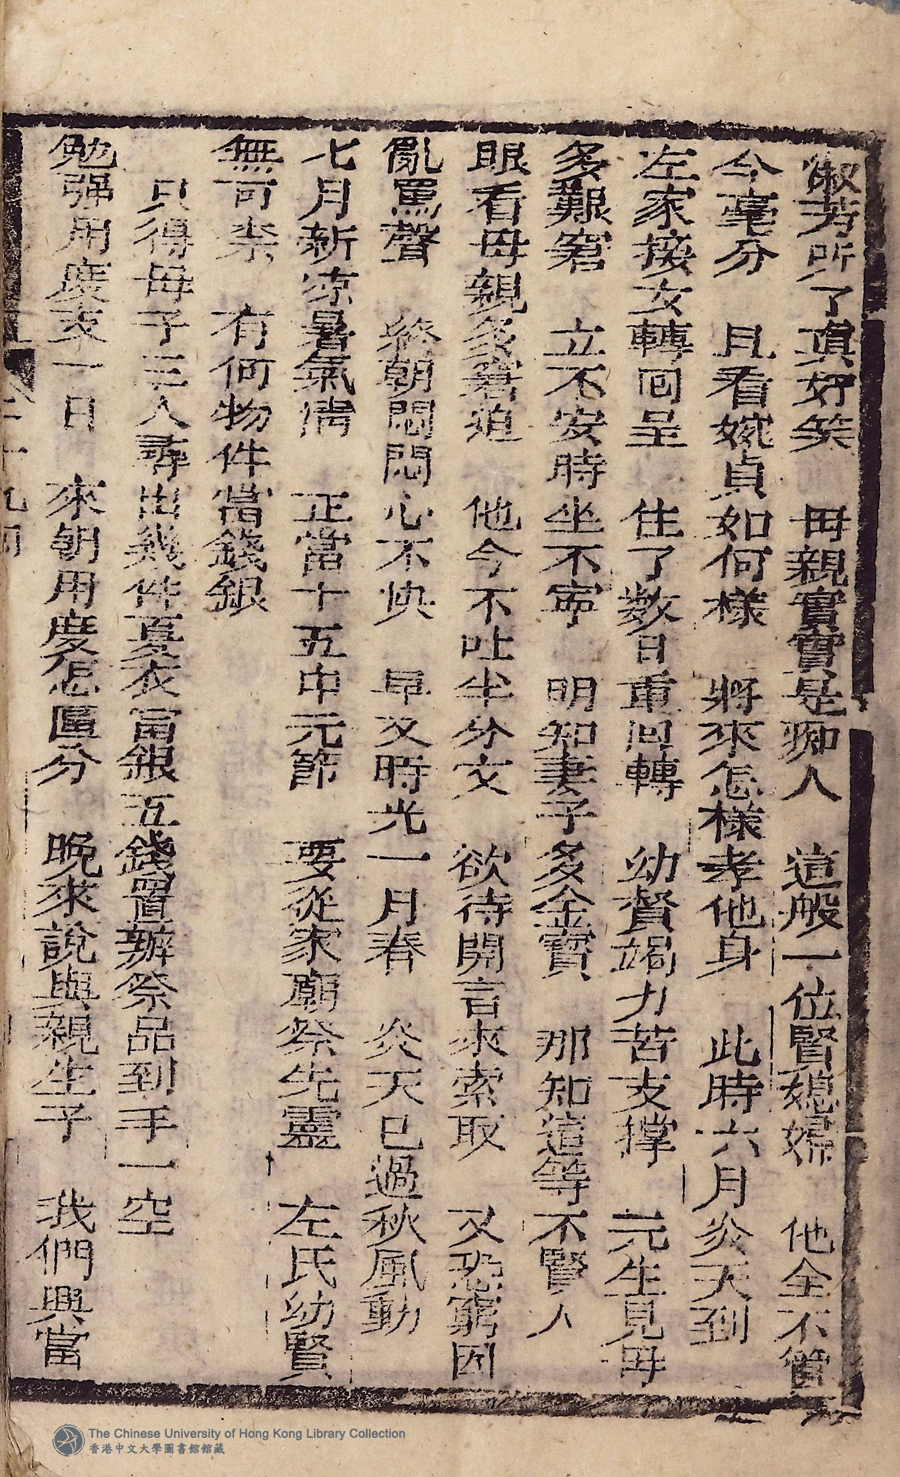 淑芳听了眞好笑　毋親實實是痴人　這般一位賢媳婦　他全不管
今毫分　且看婉貞如何樣　將來怎樣孝他身　此時六月炎天到
左家接女轉回呈　住了数日重回轉　幼賢竭力苦支撑　元生見毋
多艱窘　立不安時坐不寧　明知妻子多金寳　那知這等不賢人
眼看毋親多窘迫　他今不吐半分文　欲待開言來索取　又恐窮因
亂罵聲　終朝悶悶心不快　早又時光一月春　炎天已過秋風動
七月新凉暑氣清　正當十五中元節　要從家廟祭先靈　左氏幼賢
無可柰　有何物件當錢銀
只得母子三人尋出幾件夏衣當銀五錢置辦祭品到手一空
勉强用度支一日　來朝用度怎區分　晚來說與親生子　我們興當
二十九回
The Chinese University of Hong Kong Library Collection
香港中文大學圖書館館藏